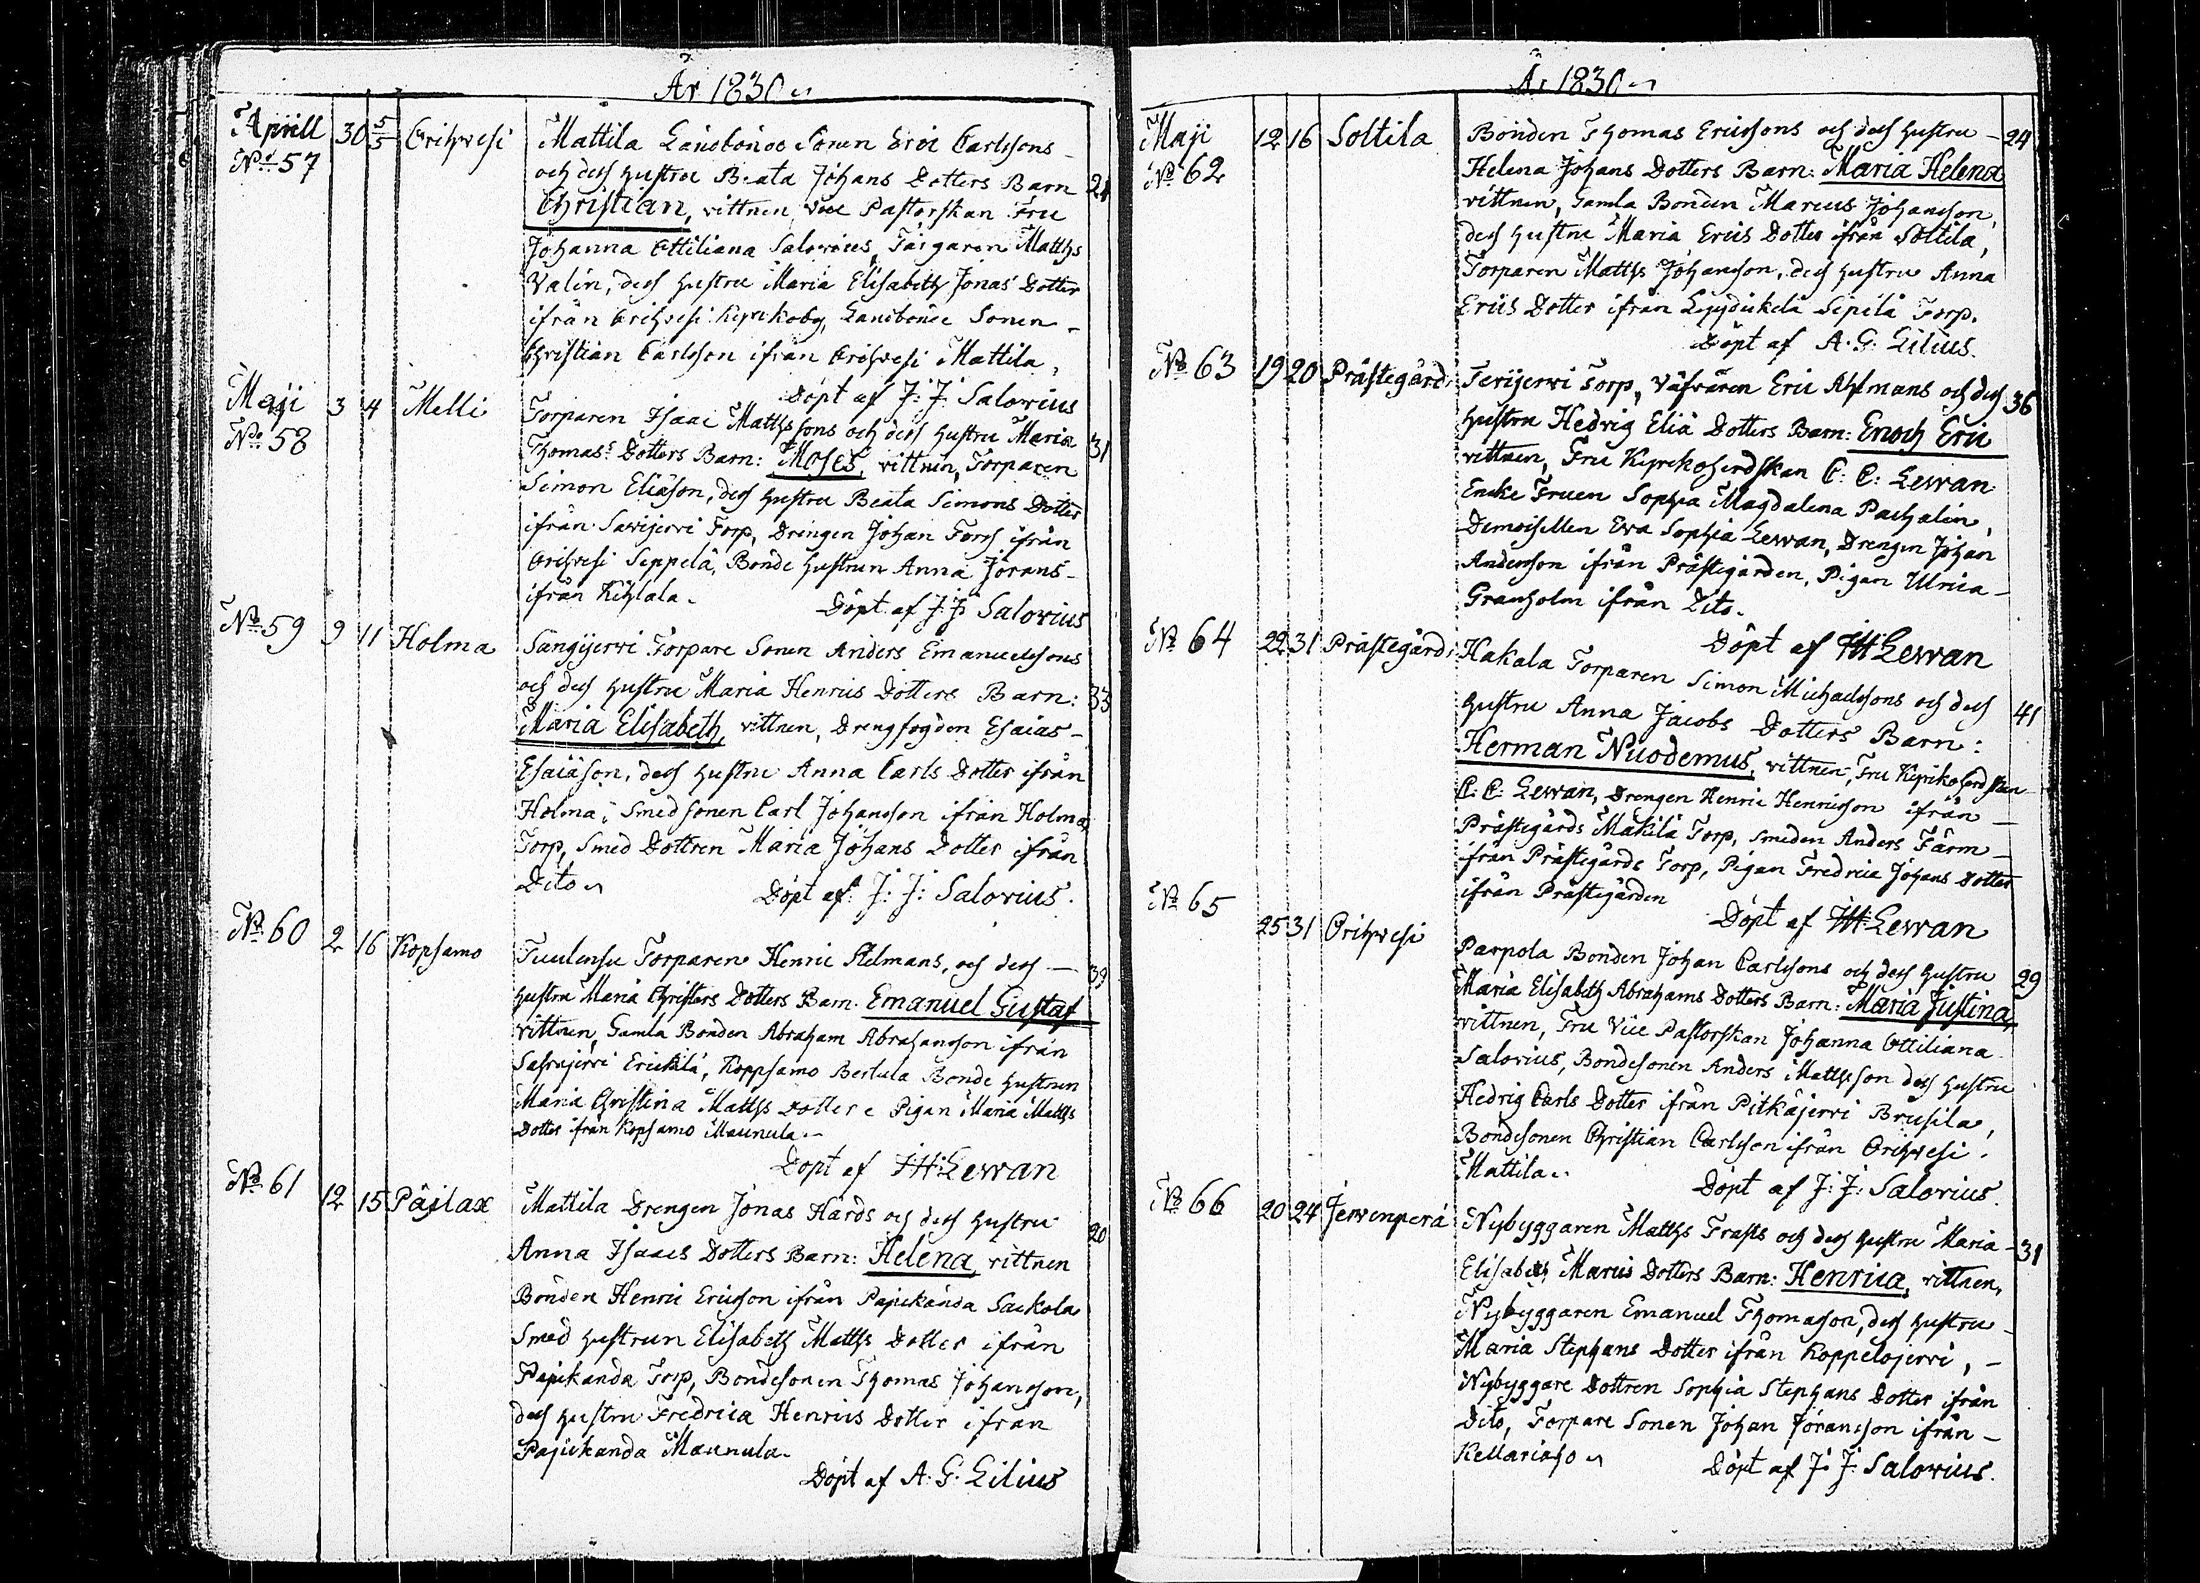 År 1830
Aprill 30 5/5 Orihvesi Mattila Landbonde Sonen Eric Carlssons
No 57 och dess hustru Beata Johans Dotters Barn 24
Christian, vittnen, Vice Pastorskan Fru
Johanna Ottiliana Salovius, Färgaren Matths
Valin, dess hustru Maria Elisabeth Jonas Dotter
ifrån Orihvesi Kyrckoby, Landbonde Sonen
Christian Carlsson ifrån Orihvesi Mattila,
Döpt af J: J: Salovius
Maji 3 4 Melli Torparen Isaac Mathssons och dess hustru Maria
No 58 Thomas Dotters Barn: Moses, vittnen, Torparen 31
Simon Eliäson, dess hustru Beata Simons Dotter
ifrån Savijervi Torp, Drengen Johan Forss ifrån
Orihvesi Seppelä, Bonde hustrun Anna Jörans
ifrån Kihlala. Döpt af J: J: Salovius
No 59 9 11 Holma Sängijervi Torpare Sonen Anders Emanuelssons
och dess hustru Maria Henrics Dotters Barn: 33
Maria Elisabeth, vittnen, Drengfogden Esaias
Esaiäson, dess hustru Anna Carls Dotter ifrån
Holma, Smedsonen Carl Johansson ifrån Holma
Torp, Smed Dottren Maria Johans Dotter ifrån
Dito Döpt af: J: J: Salovius.
No 60 2 16 Kopsamo Tuulensu Torparen Henric Stelmans, och dess 39
hustru Maria Christers Dotters Barn. Emanuel Gustaf
vittnen, Gamla Bonden Abraham Abrahamsson ifrån
Savojervi Erickilä, Koppsamo Bertula Bonde hustrun
Maria Christina Matths Dotter Pigan Maria Matths
Dotter ifrån Kopsamo Maunula.
Döpt af J H: Lewan
No 61 12 15 Päjlax Mattila Drengen Jonas Hårds och dess hustru 20
Anna Isaacs Dotters Barn: Helena, vittnen
Bonden Henric Ericsson ifrån Pajuckanda Sackola
Smed hustrun Elisabeth Matths Dotter ifrån
Pajukanda Torp, Bondesonen Thomas Johansson,
dess hustru Fredrica Henrics Dotter ifrån
Pajuckanda Maunula.
Döpt af A. G. Lilius
År 1830
Maji 12 16 Soltila Bonden Thomas Ericssons och dess hustru 24
No 62 Helena Johans Dotters Barn: Maria Helena
vittnen, Gamla Bonden Marcus Johansson,
dess hustru Maria Erics Dotter ifrån Soltila,
Torparen Matths Johansson, dess hustru Anna
Erics Dotter ifrån Sipilä Torp.
Döpt af A. G: Lilius.
No 63 19 20 Prästegård Terijervi Torp, Väfvaren Eric Ahlmans och dess 36
hustru Hedvig Eliä Dotters Barn: Enoch Eric
vittnen, Fru Kyrckoherdskan C: C: Lewan
Encke Fruen Sophia Magdalena Pachalin,
Demoisellen Eva Sophia Lewan, Drengen Johan
Andersson ifrån Prästegården, Pigan Ulrica
Granholm ifrån Dito.
Döpt af J H: Lewan
No 64 22 31 Prästegård Hakala Torparen Simon Michaelssons och dess
hustru Anna Jacobs Dotters Barn: 41
Herman Nicodemus, vittnen, Fru Kyrckoherdskan
C: C: Lewan, Drengen Henric Henricsson ifrån
Prästegårds Mäkilä Torp, Smeden Anders Färm
ifrån Prästegårds Torp, Pigan Fredrica Johans Dotter
ifrån Prästegården
Döpt af J H: Lewan
No 65 25 31 Orihvesi Parpola Bonden Johan Carlssons och dess hustru 29
Maria Elisabeth Abrahams Dotters Barn: Maria Justina,
vittnen, Fru Vice Pastorskan Johanna Ottiliana
Salovius, Bondesonen Anders Mathsson dess hustru
Hedvig Carls Dotter ifrån Pitkäjervi Brusila,
Bondesonen Christian Carlsson ifrån Orihvesi
Mattila. Döpt af J: J: Salovius.
No 66 20 24 Jervenperä Nybyggaren Matths Frasts och dess hustru Maria 31
Elisabets Marcus Dotters Barn: Henrica, vittnen,
Nybyggaren Emanuel Thomasson, dess hustru
Maria Stephans Dotter ifrån Koppelojervi,
Nybyggare Dottren Sophia Stephans Dotter ifrån
Dito, Torpare Sonen Johan Göransson ifrån
Kellariaho Döpt af J. J: Salovius.